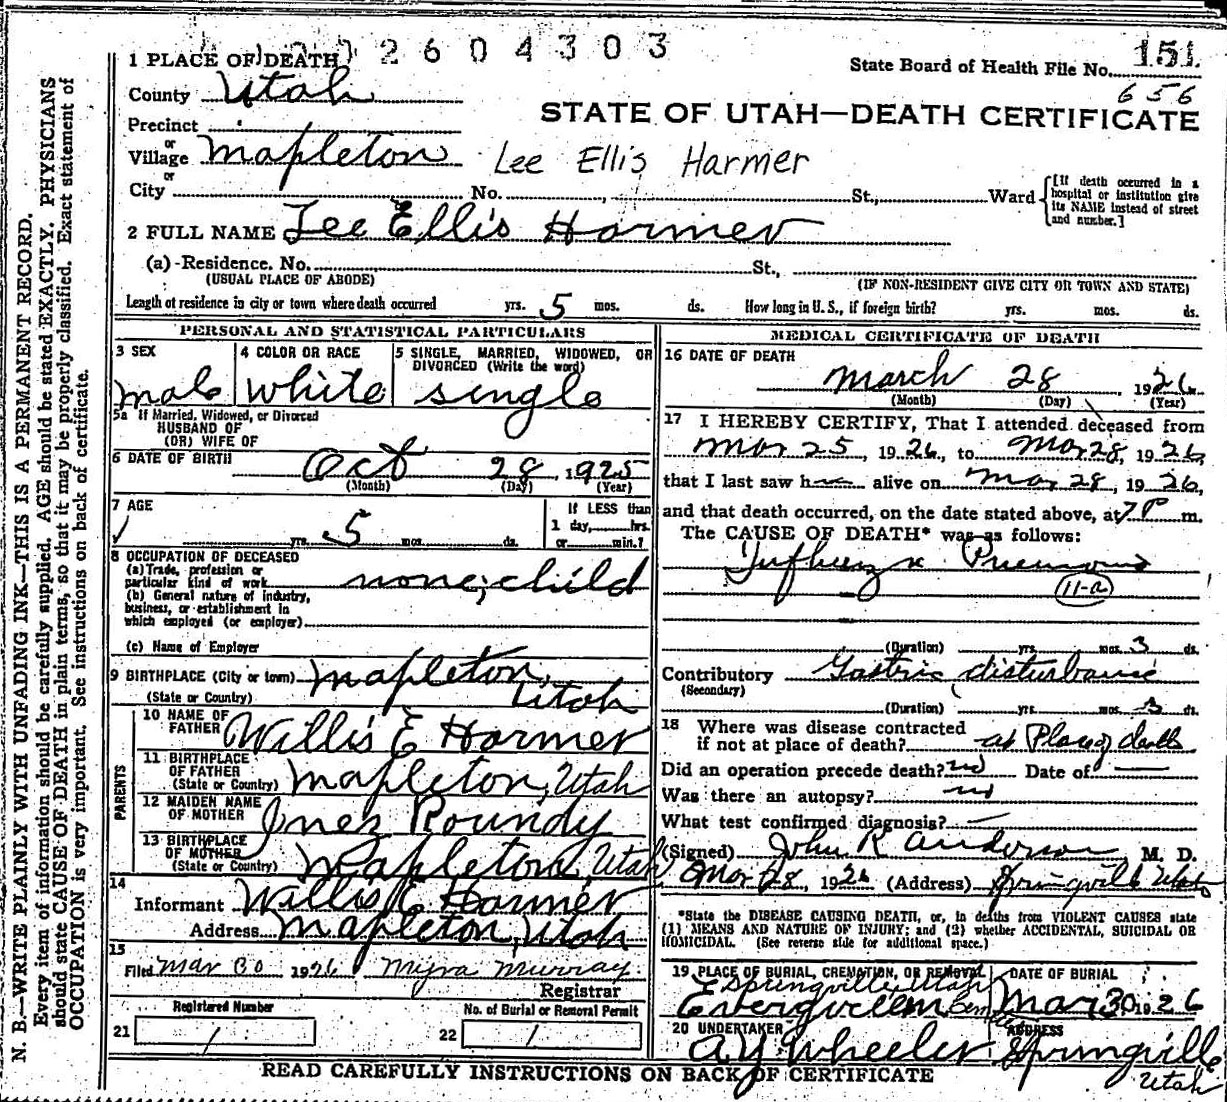 2604303
1 PLACE OF DEATH
State Board of Health File No. 151
656
County Utah
STATE OF UTAH—DEATH CERTIFICATE
Precinct
or
Village Mapleton Lee Ellis Harmer
or
City No. St., Ward [If death occurred in a hospital or institution give its NAME instead of street and number.]
2 FULL NAME Lee Ellis Harmer
(a) Residence. No. St.,
(USUAL PLACE OF ABODE) (IF NON-RESIDENT GIVE CITY OR TOWN AND STATE)
Length of residence in city or town where death occurred yrs. 5 mos. ds. How long in U. S., if foreign birth? yrs. mos. ds.
PERSONAL AND STATISTICAL PARTICULARS
3 SEX 4 COLOR OR RACE 5 SINGLE, MARRIED, WIDOWED, OR
DIVORCED (Write the word)
male white single
5a If Married, Widowed, or Divorced
HUSBAND OF
(OR) WIFE OF
6 DATE OF BIRTH Oct 28, 1925
(Month) (Day) (Year)
7 AGE If LESS than
1 day, hrs.
yrs. 5 mos. ds. or min.?
8 OCCUPATION OF DECEASED
(a) Trade, profession or
particular kind of work none; child
(b) General nature of industry,
business, or establishment in
which employed (or employer)
(c) Name of Employer
9 BIRTHPLACE (City or town) Mapleton,
(State or Country) Utah
PARENTS
10 NAME OF
FATHER Willis E Harmer
11 BIRTHPLACE
OF FATHER
(State or Country) Mapleton, Utah
12 MAIDEN NAME
OF MOTHER Inez Roundy
13 BIRTHPLACE
OF MOTHER
(State or Country) Mapleton, Utah
14
Informant Willis E Harmer
Address Mapleton, Utah
15
Filed Mar 30 1926 Myra Murray
Registrar
Registered Number No. of Burial or Removal Permit
21 1 22 1
MEDICAL CERTIFICATE OF DEATH
16 DATE OF DEATH
March 28 1926
(Month) (Day) (Year)
17 I HEREBY CERTIFY, That I attended deceased from
Mar 25, 1926, to Mar 28, 1926,
that I last saw h alive on Mar 28, 1926,
and that death occurred, on the date stated above, at 7 P m.
The CAUSE OF DEATH* was as follows:
Influenza Pneumonia
11-a
(Duration) yrs. mos. 3 ds.
Contributory Gastric disturbance
(Secondary)
(Duration) yrs. mos. 3 ds.
18 Where was disease contracted
if not at place of death? at Place of death
Did an operation precede death? no Date of
Was there an autopsy? no
What test confirmed diagnosis?
(Signed) John R Anderson M. D.
Mar 28, 1926 (Address) Springville Utah
*State the DISEASE CAUSING DEATH, or, in deaths from VIOLENT CAUSES state
(1) MEANS AND NATURE OF INJURY; and (2) whether ACCIDENTAL, SUICIDAL OR
HOMICIDAL. (See reverse side for additional space.)
19 PLACE OF BURIAL, CREMATION, OR REMOVAL DATE OF BURIAL
Springville Utah
Evergreen Mar 30 1926
20 UNDERTAKER ADDRESS
A Y Wheeler Springville
Utah
READ CAREFULLY INSTRUCTIONS ON BACK OF CERTIFICATE
N. B.—WRITE PLAINLY WITH UNFADING INK—THIS IS A PERMANENT RECORD.
Every item of information should be carefully supplied. AGE should be stated EXACTLY. PHYSICIANS
should state CAUSE OF DEATH in plain terms, so that it may be properly classified. Exact statement of
OCCUPATION is very important. See instructions on back of certificate.